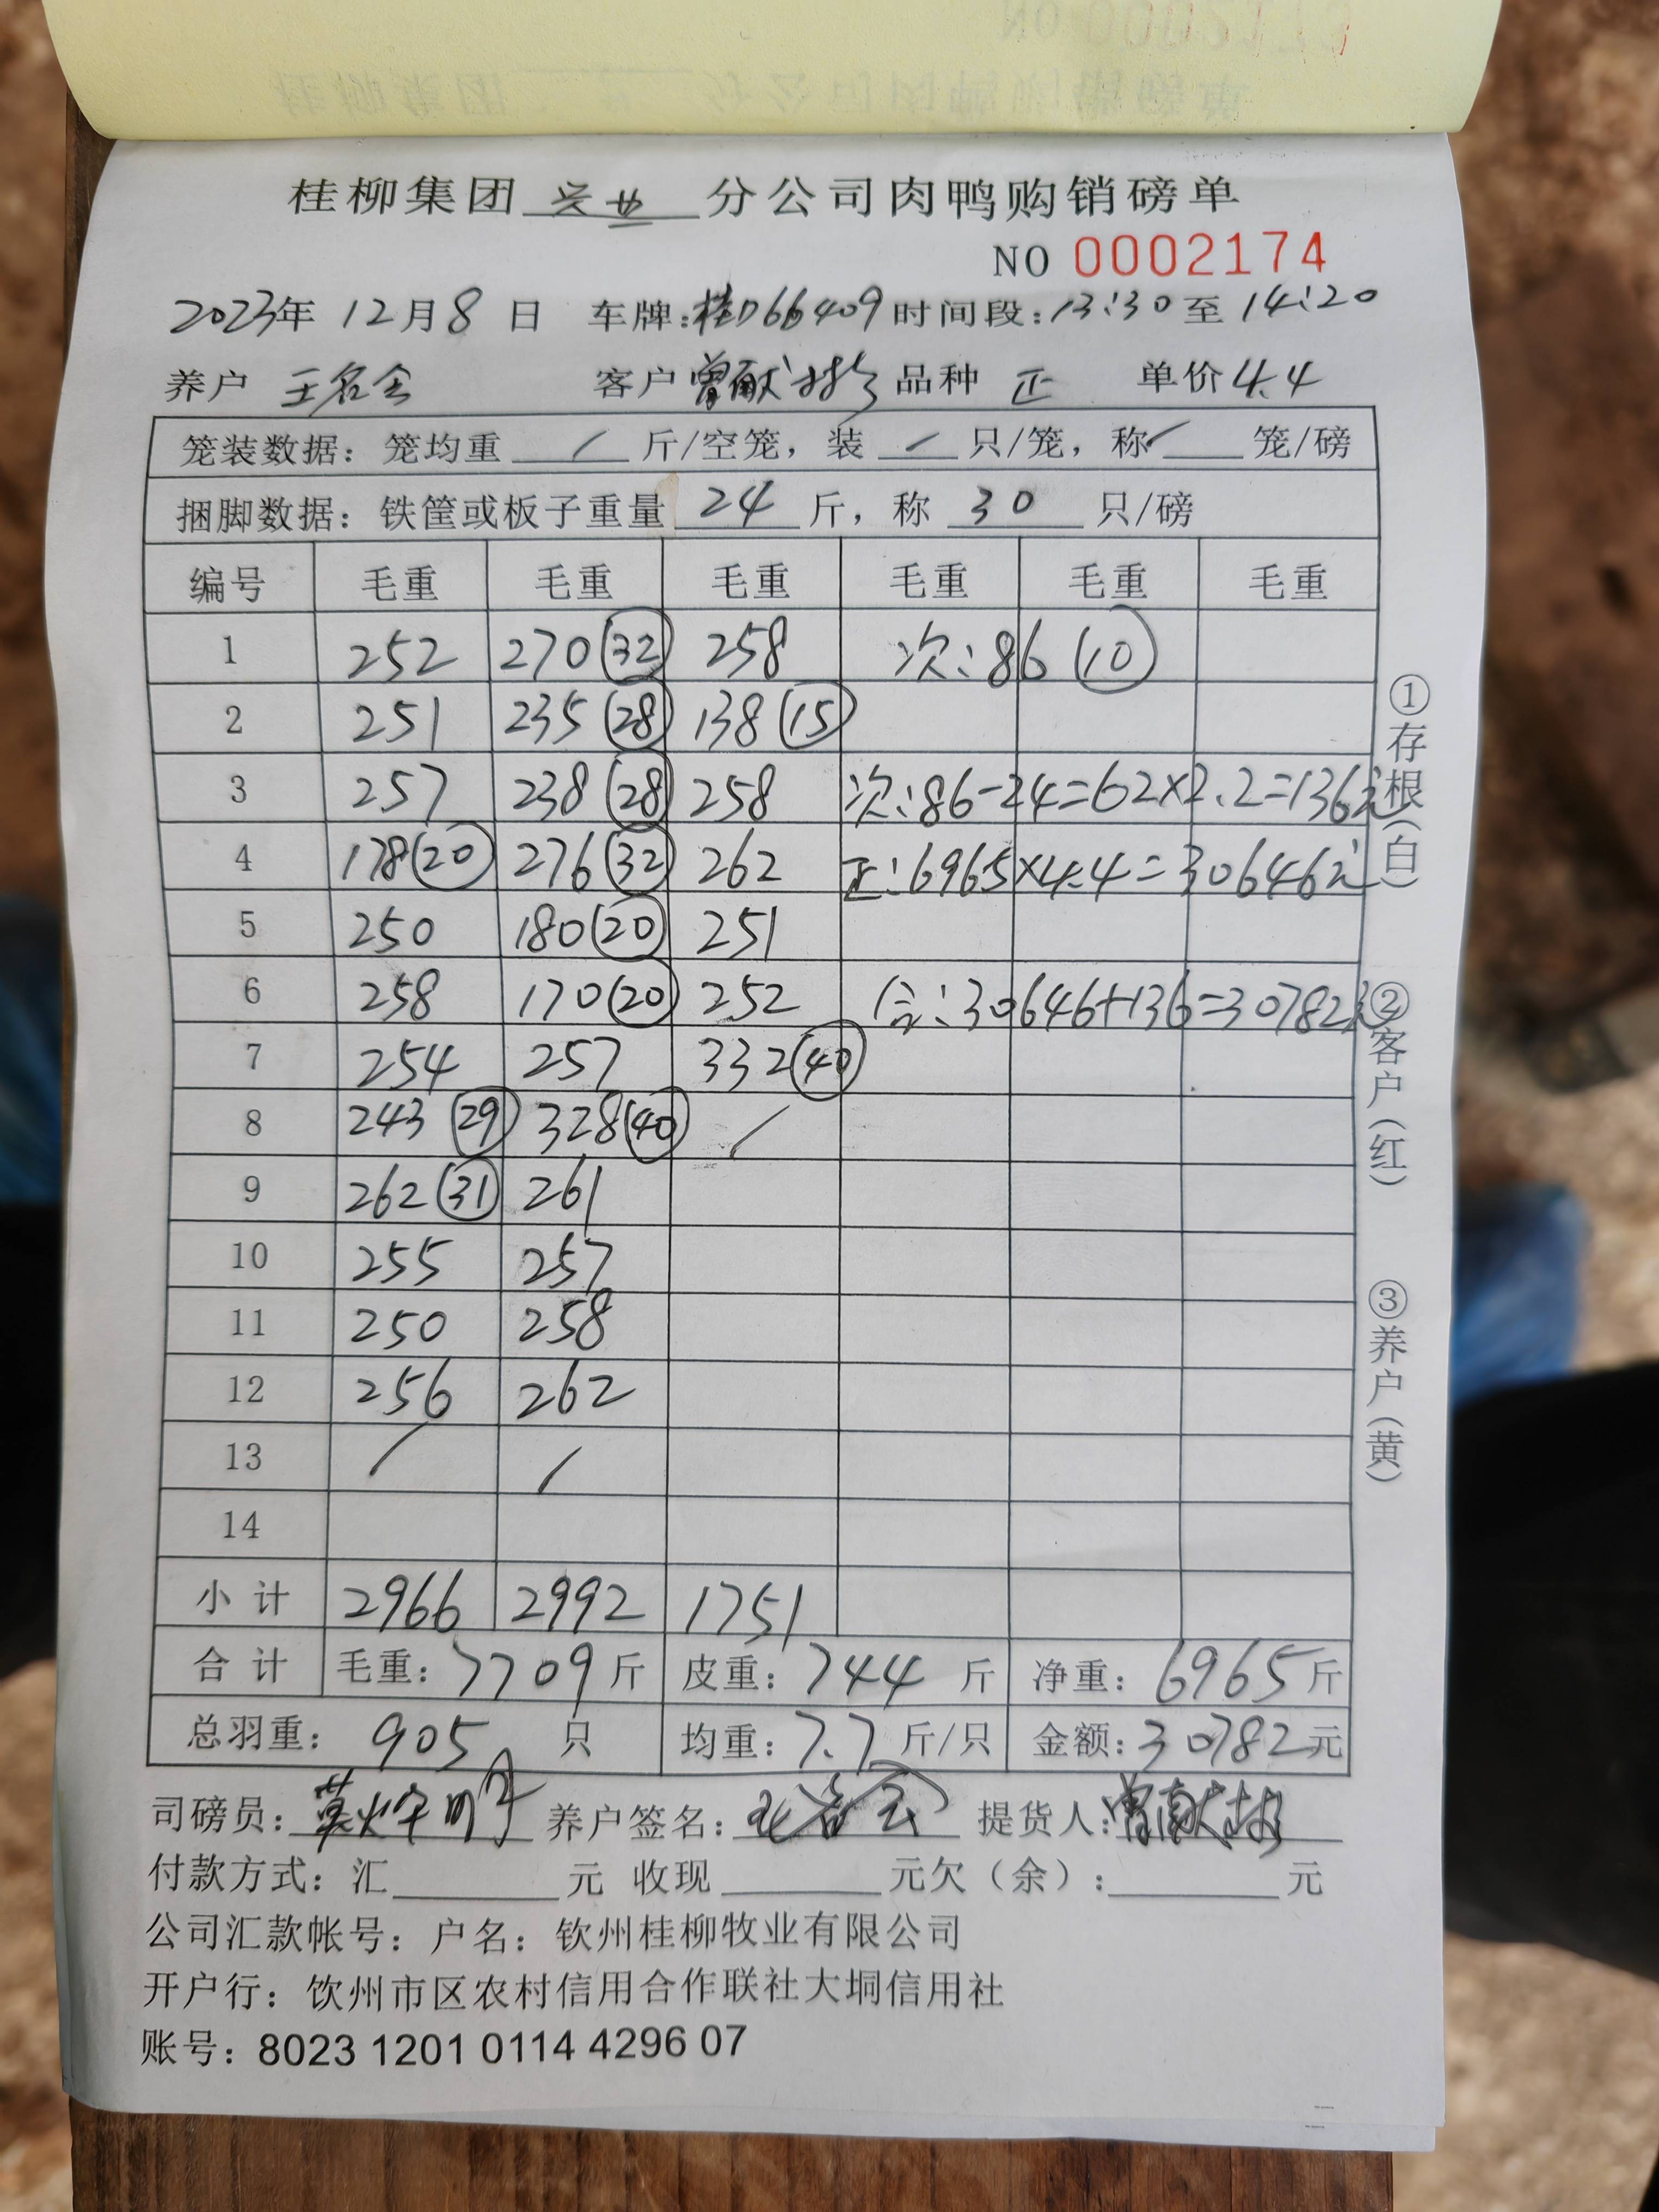 桂柳集团 兴业 分公司肉鸭购销磅单
NO 0002174
2023年 12月 8 日 车牌:桂D66409 时间段:13:30 至 14:20
养户 王名会 客户 曾献 品种 正 单价 4.4
笼装数据: 笼均重 / 斤/空笼, 装 / 只/笼, 称 / 笼/磅
捆脚数据: 铁筐或板子重量 24 斤, 称 30 只/磅
编号 毛重 毛重 毛重 毛重 毛重 毛重
1 252 270 (32) 258 次:86 (10)
2 251 235 (28) 138 (15)
3 257 238 (28) 258 次:86-24=62×2.2=136元
4 178 (20) 276 (32) 262 正:6965×4.4=30646元
5 250 180 (20) 251
6 258 170 (20) 252 合:30646+136=30782元
7 254 257 332 (40)
8 243 (29) 328 (40) /
9 262 (31) 261
10 255 257
11 250 258
12 256 262
13 / /
14
小计 2966 2992 1751
合计 毛重: 7709 斤 皮重: 744 斤 净重: 6965 斤
总羽重: 905 只 均重: 7.7 斤/只 金额: 30782 元
①存根(白) ②客户(红) ③养户(黄)
司磅员: 养户签名: 提货人: 曾献
付款方式: 汇 元 收现 元欠(余): 元
公司汇款帐号: 户名: 钦州桂柳牧业有限公司
开户行: 饮州市区农村信用合作联社大垌信用社
账号: 8023 1201 0114 4296 07